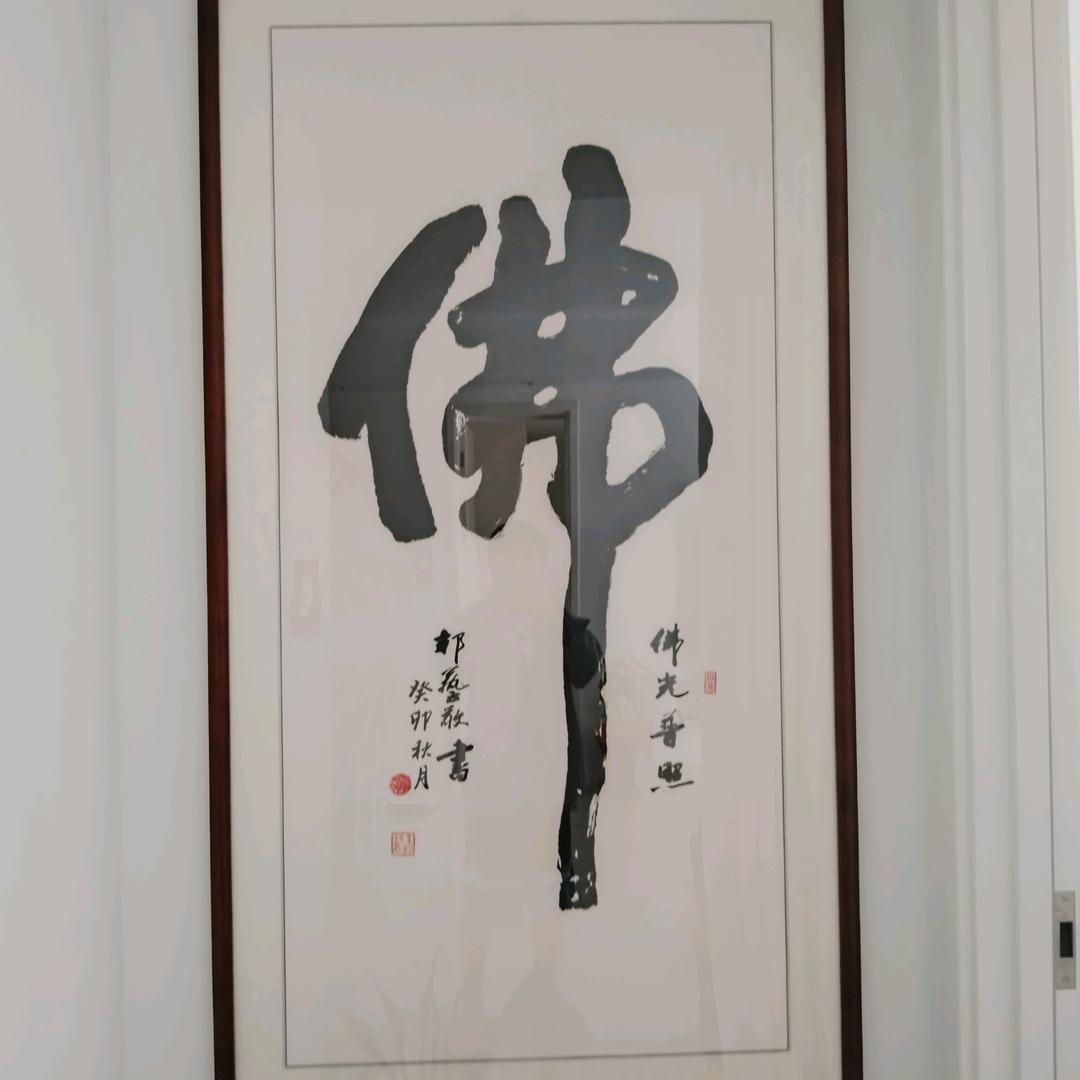 佛
佛光普照
癸卯秋月
敬書